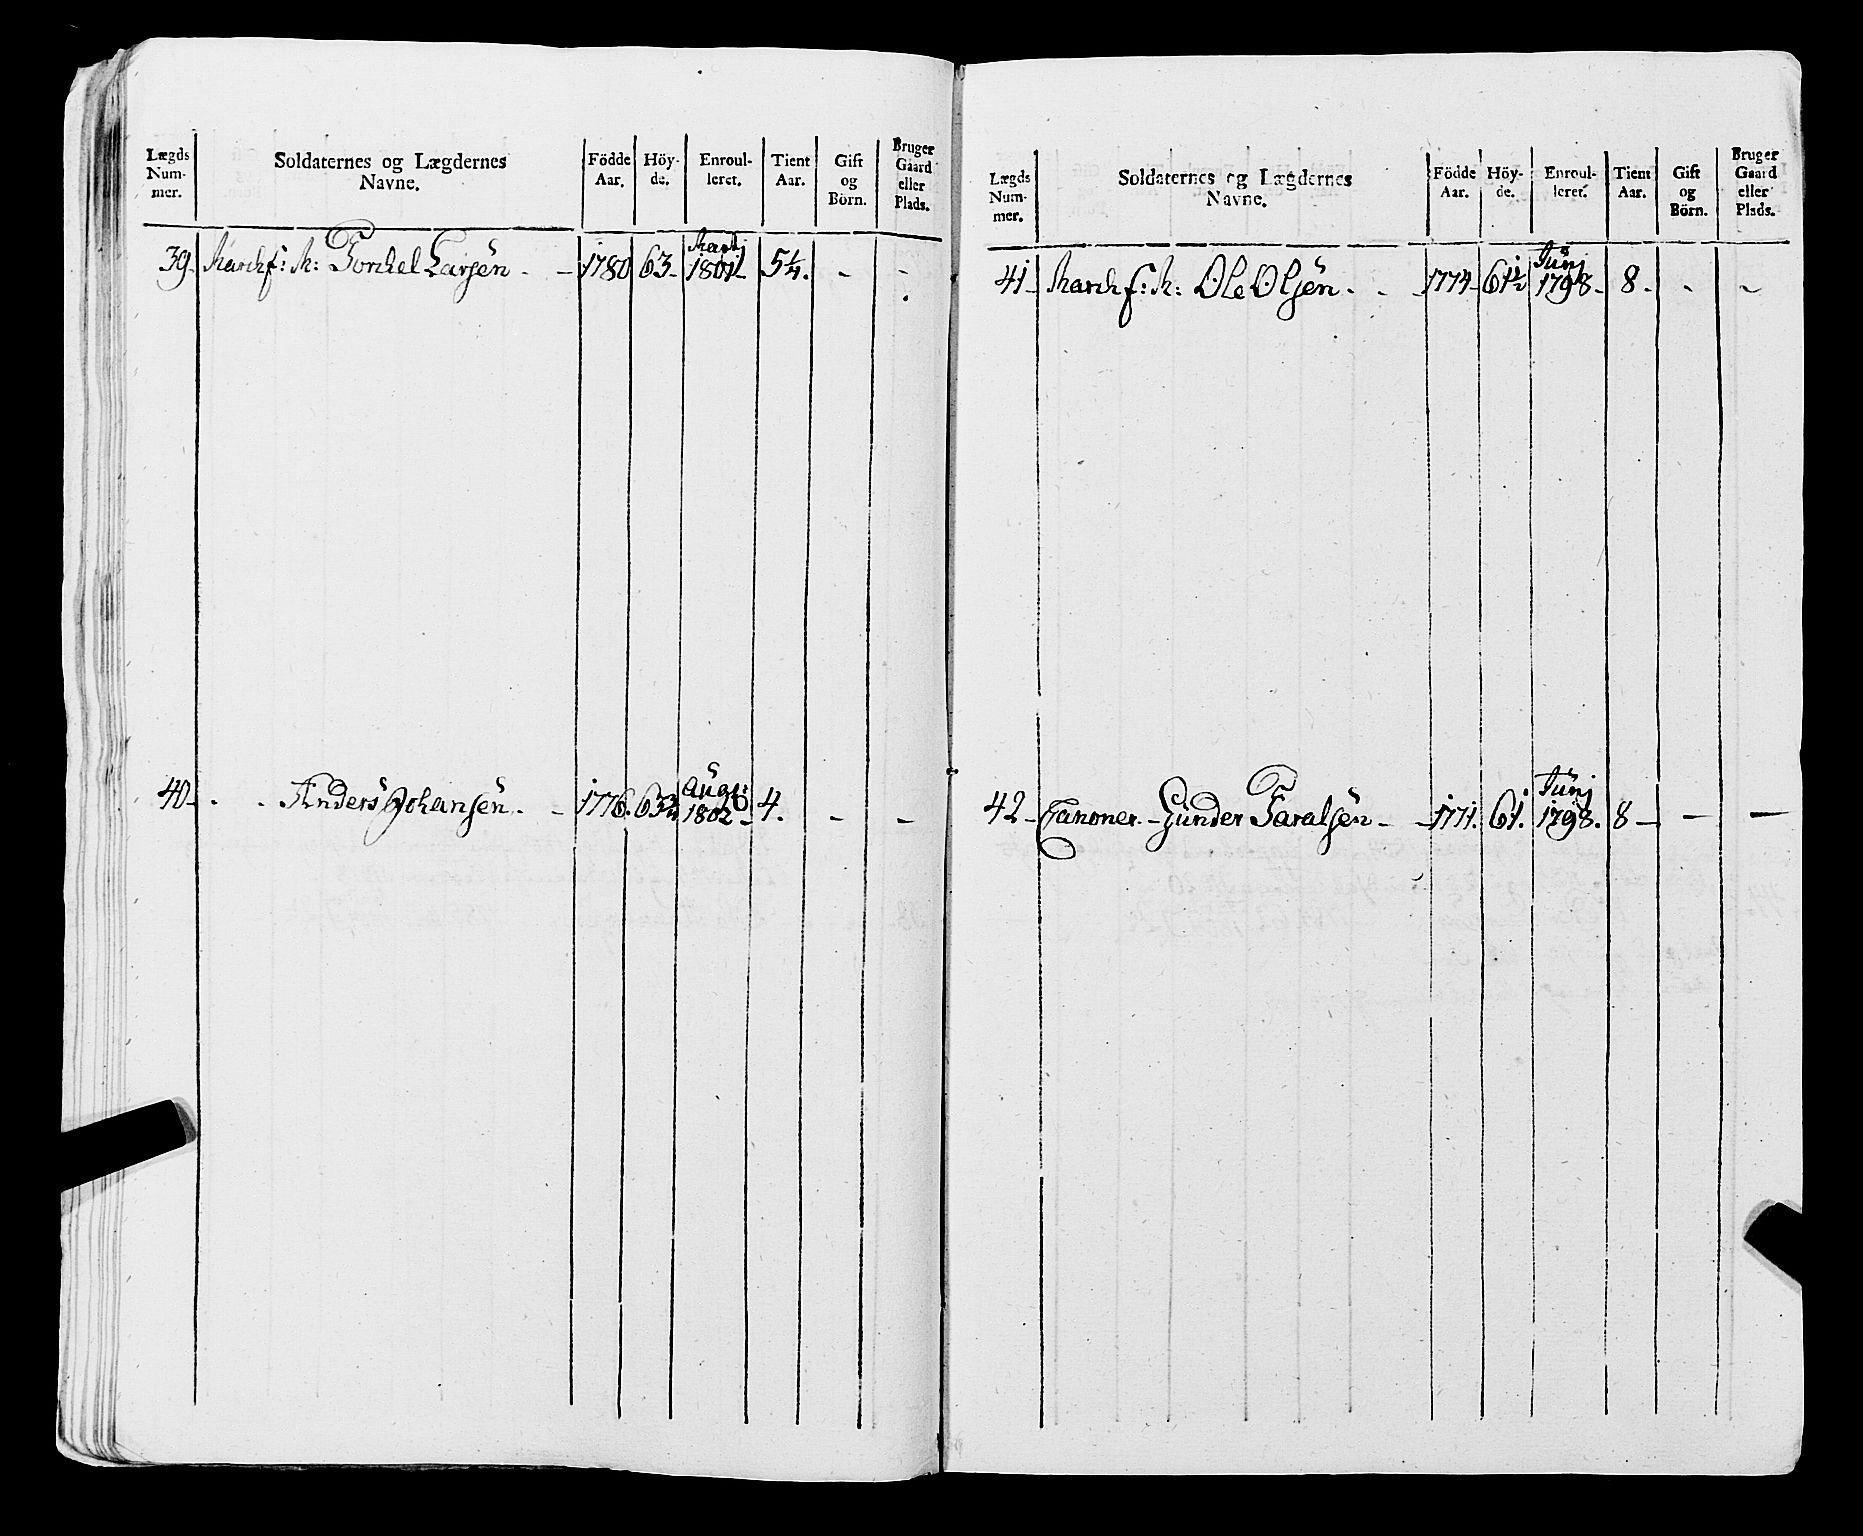 Lægds Num- mer.
Soldaternes og Lægdernes Navne.
Födde Aar.
Höy- de.
Enroul- leret.
Tient Aar.
Gift og Börn.
Bruger Gaard eller Plads.
Martj
39- March f: k: Torckel Larsen - - 1780 63- 1801 5¼. - -
Augt:
40- - - Anders Johansen. - 1776. 63¾ 1802- 4. - -
Lægds Num- mer.
Soldaternes og Lægdernes Navne.
Födde Aar.
Höy- de.
Enroul- leret.
Tient Aar.
Gift og Börn.
Bruger Gaard eller Plads.
Junj
41- March f: k: Ole Olsen - - 1774- 61½ 1798- 8- - -
Junj
42- Gunder Taralsen - - 1771. 61. 1798. 8 - - -